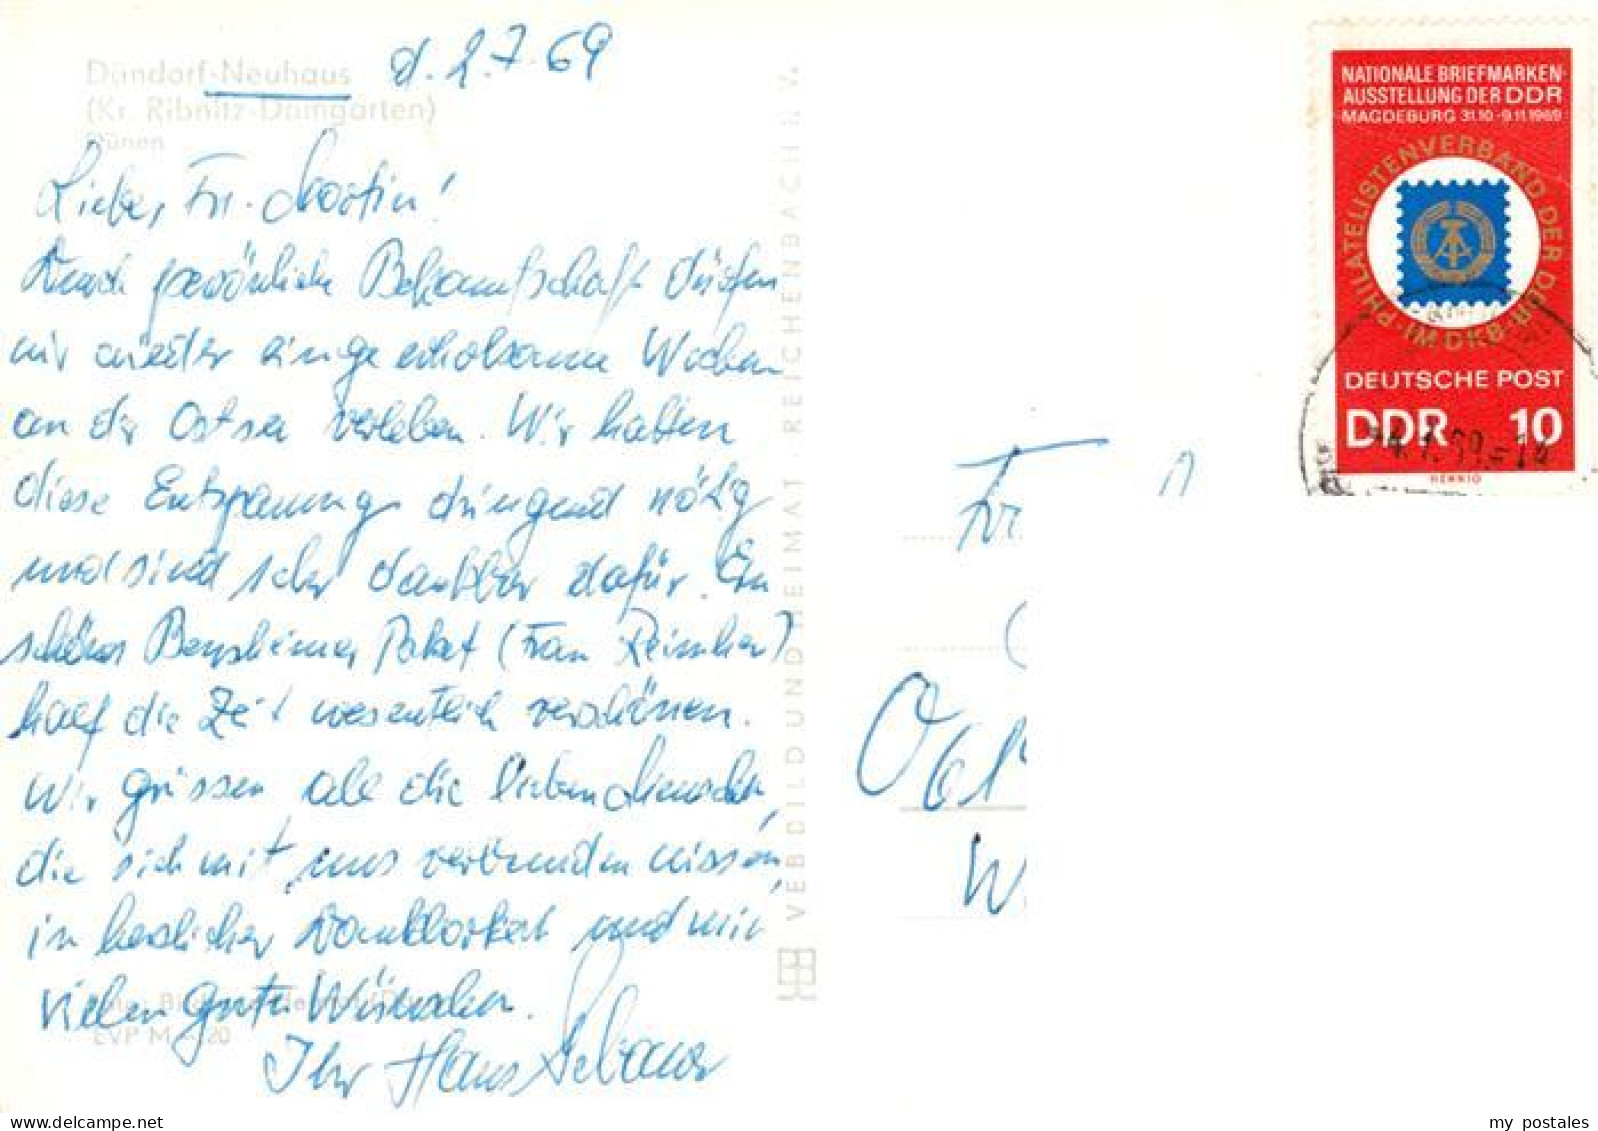 Dändorf-Neuhaus
(Kr. Ribnitz-Damgarten)
Dünen
d. 2.7.69
Liebe, Fr. Martin!
Durch persönliche Bekanntschaft dürfen
wir wieder einige erholsame Wochen
an der Ostsee verleben. Wir hatten
diese Entspannung dringend nötig
und sind sehr dankbar dafür. Ein
schönes Bensheimer Paket (Frau
half die Zeit wesentlich verschönen.
Wir grüssen all die lieben Menschen,
die sich mit uns verbunden wissen,
in herzlicher Dankbarkeit und mit
vielen guten Wünschen.
Ihr Hans
EVP M
VEB BILD UND HEIMAT · REICHENBACH I. V.
NATIONALE BRIEFMARKEN-
AUSSTELLUNG DER DDR
MAGDEBURG 31.10.-9.11.1969
PHILATELISTENVERBAND DER DDR · IM DKB ·
DEUTSCHE POST
DDR 10
Fr.
W
my_postales